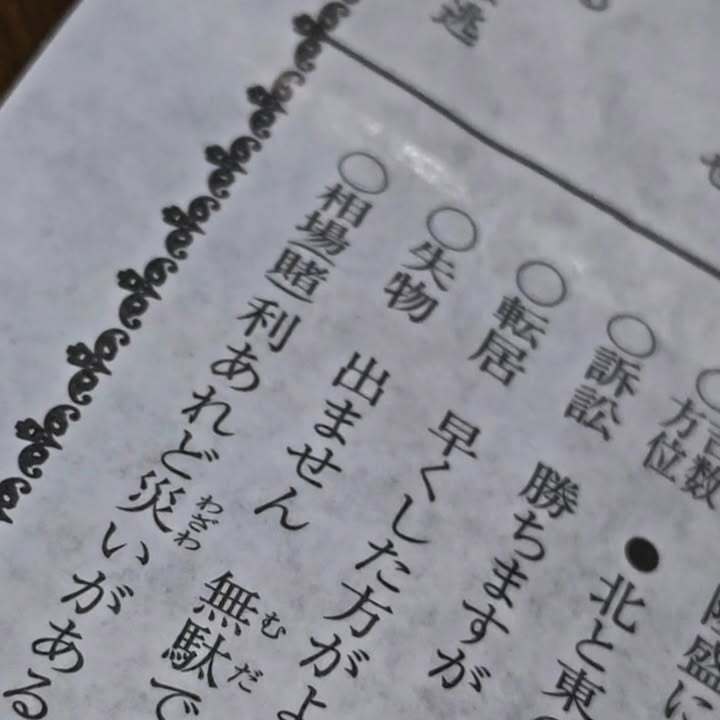 方位 ●北と東
○訴訟 勝ちますが
○転居 早くした方がよ
○失物 出ません 無駄で
むだ
○相場(賭) 利あれど災いがある
わざわ